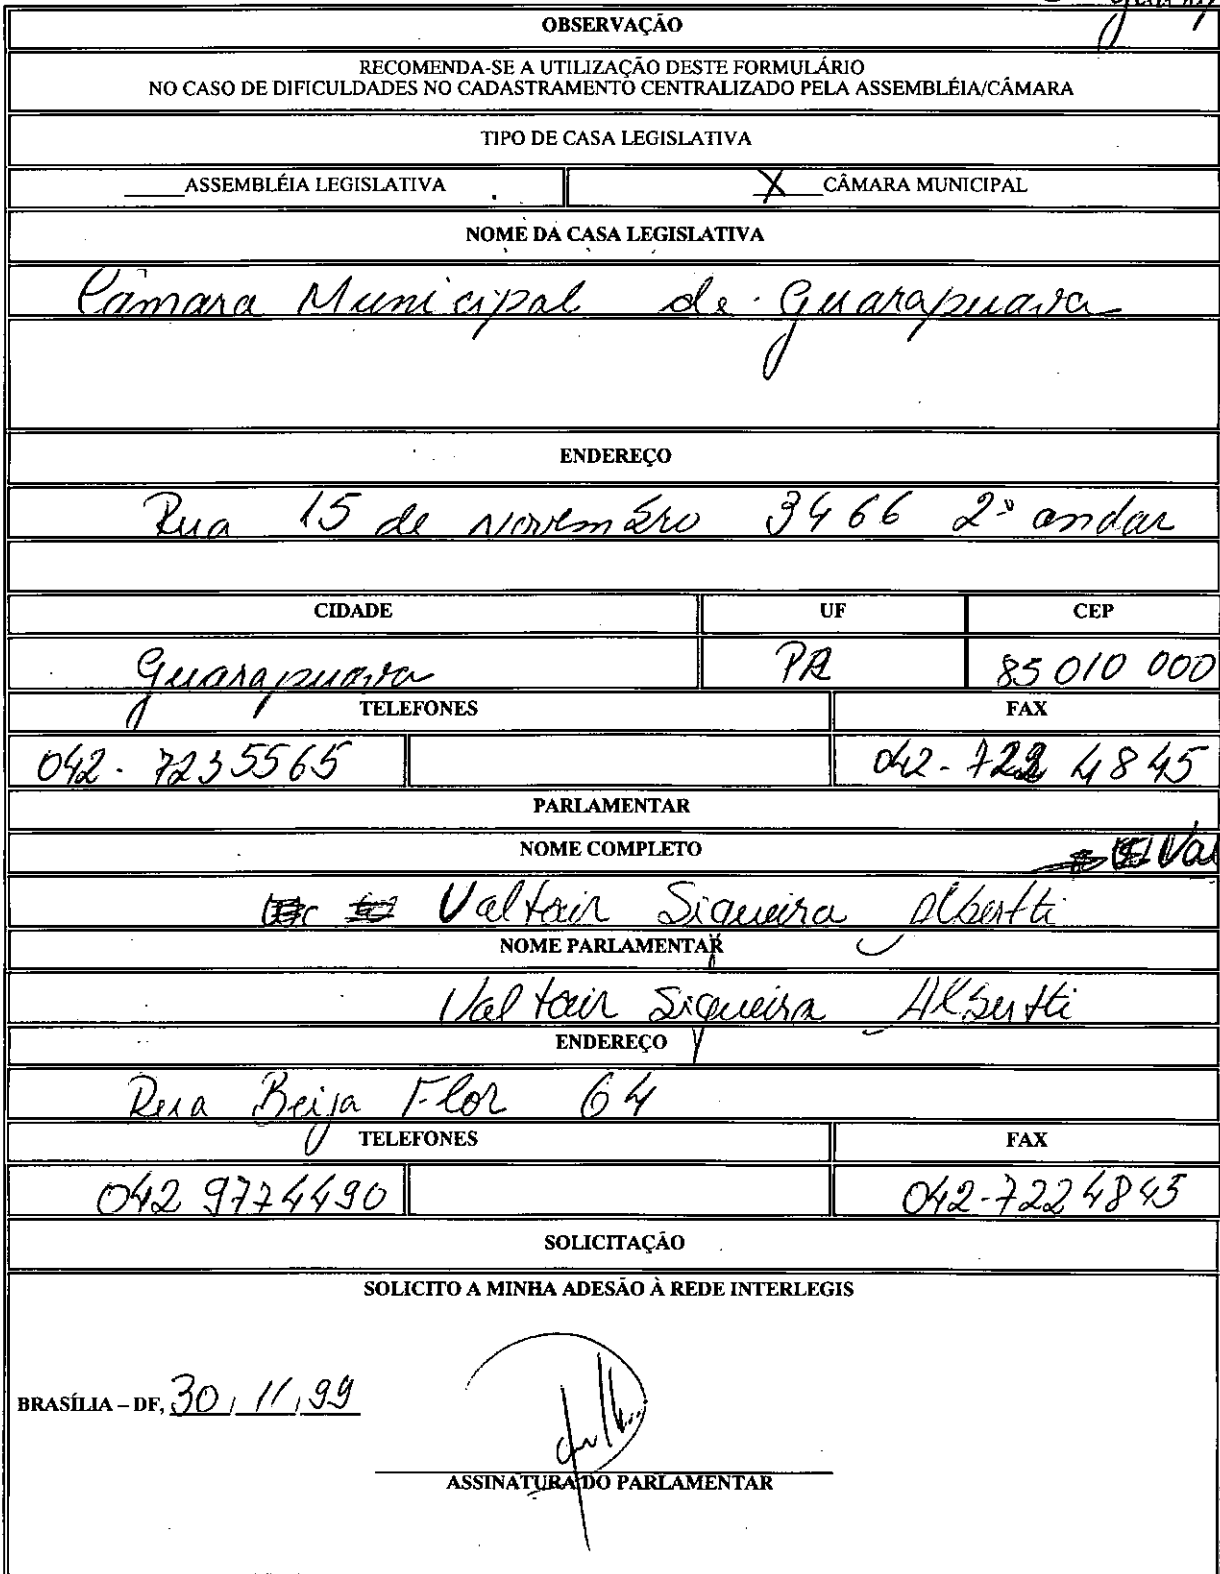 OBSERVAÇÃO
RECOMENDA-SE A UTILIZAÇÃO DESTE FORMULÁRIO
NO CASO DE DIFICULDADES NO CADASTRAMENTO CENTRALIZADO PELA ASSEMBLÉIA/CÂMARA
TIPO DE CASA LEGISLATIVA
_____ASSEMBLÉIA LEGISLATIVA
X CÂMARA MUNICIPAL
NOME DA CASA LEGISLATIVA
Câmara Municipal de Guarapuava
ENDEREÇO
Rua 15 de novembro 3466 2º andar
CIDADE UF CEP
Guarapuava PR 85 010 000
TELEFONES FAX
042 - 7235565 042 - 722 4845
PARLAMENTAR
NOME COMPLETO
Val
Valtair Siqueira Albertti
NOME PARLAMENTAR
Valtair Siqueira Albertti
ENDEREÇO
Rua Beija Flor 64
TELEFONES FAX
042 9774490 042-7224845
SOLICITAÇÃO
SOLICITO A MINHA ADESÃO À REDE INTERLEGIS
BRASÍLIA – DF, 30 / 11 / 99
ASSINATURA DO PARLAMENTAR